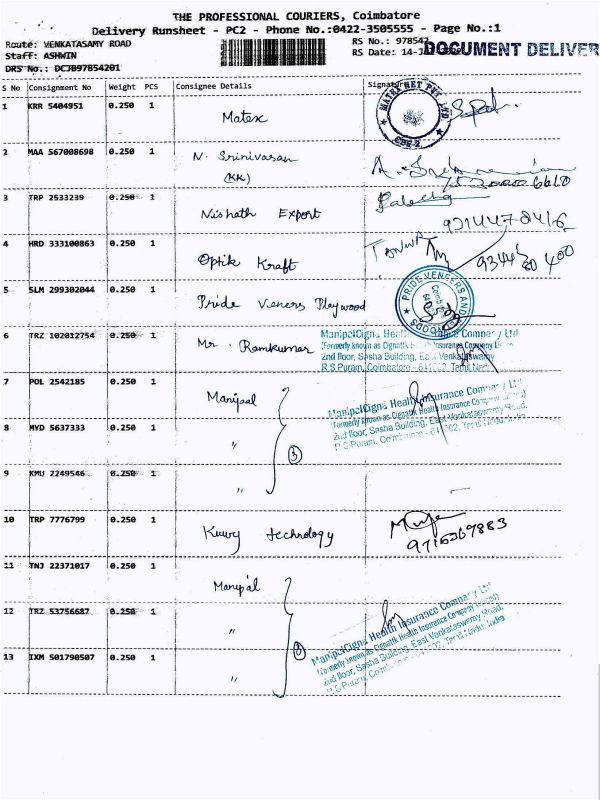 THE PROFESSIONAL COURIERS, Coimbatore
Delivery Runsheet - PC2 - Phone No.:0422-3505555 - Page No.:1
Route: VENKATASAMY ROAD
RS No.: 978542
DOCUMENT DELIVER
Staff: ASHWIN
RS Date: 14-J
DRS No.: DCJB97854201
S No Consignment No Weight PCS Consignee Details Signature
1 KRR 5404951 0.250 1 Matex
2 MAA 567008698 0.250 1 N. Srinivasan
(KK)
3 TRP 2533239 0.250 1 Nishath Export
4 HRD 333100863 0.250 1 Optik Kraft
5 SLM 299302044 0.250 1 Pride Veners Playwood
PRIDE VENEERS AND
6 TRZ 102012754 0.250 1 Mr. Ramkumar
ManipalCigna Health Insurance Company Ltd
(Formerly known as Cignattk Health Insurance Company
2nd floor, Sasha Building, East Venkataswamy
R S Puram, Coimbatore - 641002, Tamil Nadu
7 POL 2542185 0.250 1 Manipal
ManipalCigna Health Insurance Company Ltd
Formerly known as Cignattk Health Insurance Company
2nd floor, Sasha Building, East Venkataswamy Road,
R S Puram, Coimbatore - 641002, Tamil Nadu, India
8 MYD 5637333 0.250 1 "
3
9 KMU 2249546 0.250 1 "
10 TRP 7776799 0.250 1 technology
11 TNJ 22371017 0.250 1 Manipal
12 TRZ 53756687 0.250 1 "
ManipalCigna Health Insurance Company Ltd
(Formerly known as Cignattk Health Insurance Company
2nd floor, Sasha Building, East Venkataswamy Road,
R S Puram, Coimbatore - 641002, Tamil Nadu, India
13 IXM 501790507 0.250 1 "